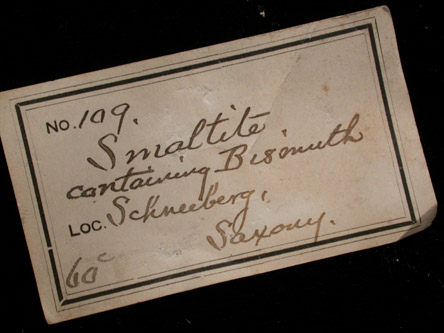 NO. 109.
Smaltite
containing Bismuth
LOC. Schneeberg,
Saxony.
60c